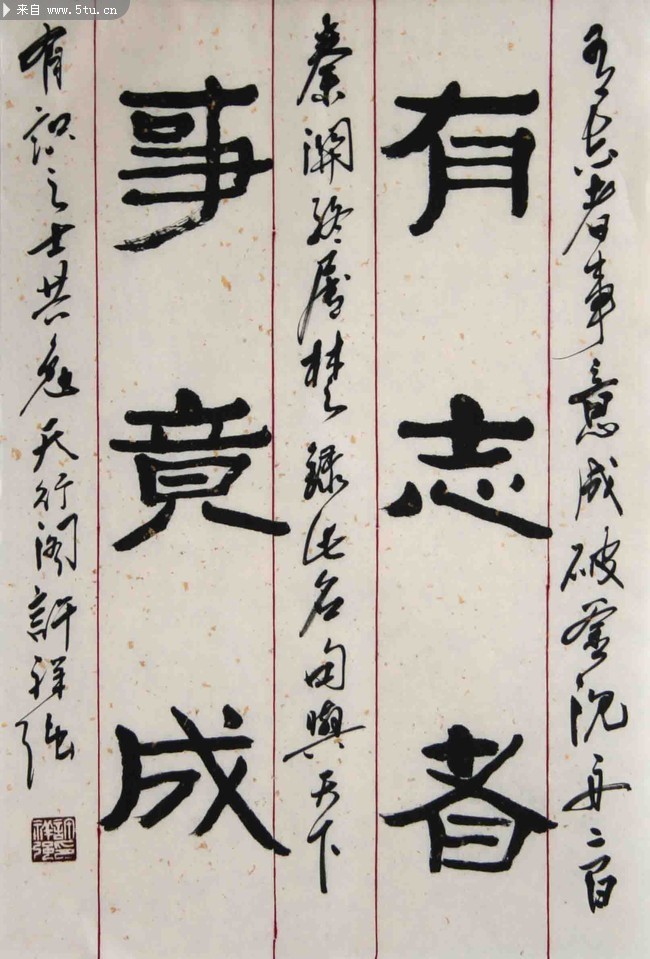 来自 www.5tu.cn
有志者事竟成破釜沉舟二百
有志者
秦关终属楚录此名句与天下
事竟成
有识之士共勉天行阁許祥强
許印祥强